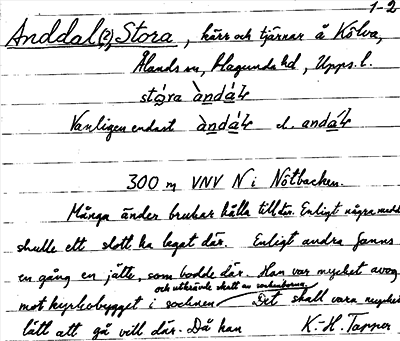 1-2
Anddal(?), Stora, kärr och tjärnar å Kölva,
Ålands sn, Hagunda hd, Upps. l.
stóra àndáɫ
Vanligen endast àndáɫ el. andáɫ
300 m VNV N i Nötbacken.
Många änder brukar hålla till där. Enligt några
skulle ett slott ha legat där. Enligt andra fanns
en gång en jätte, som bodde där. Han var mycket avog
och utkrävde skatt av sockenborna
mot kyrkobygget i socknen. Det skall vara mycket
lätt att gå vill där. Då han K.-H. Tapper